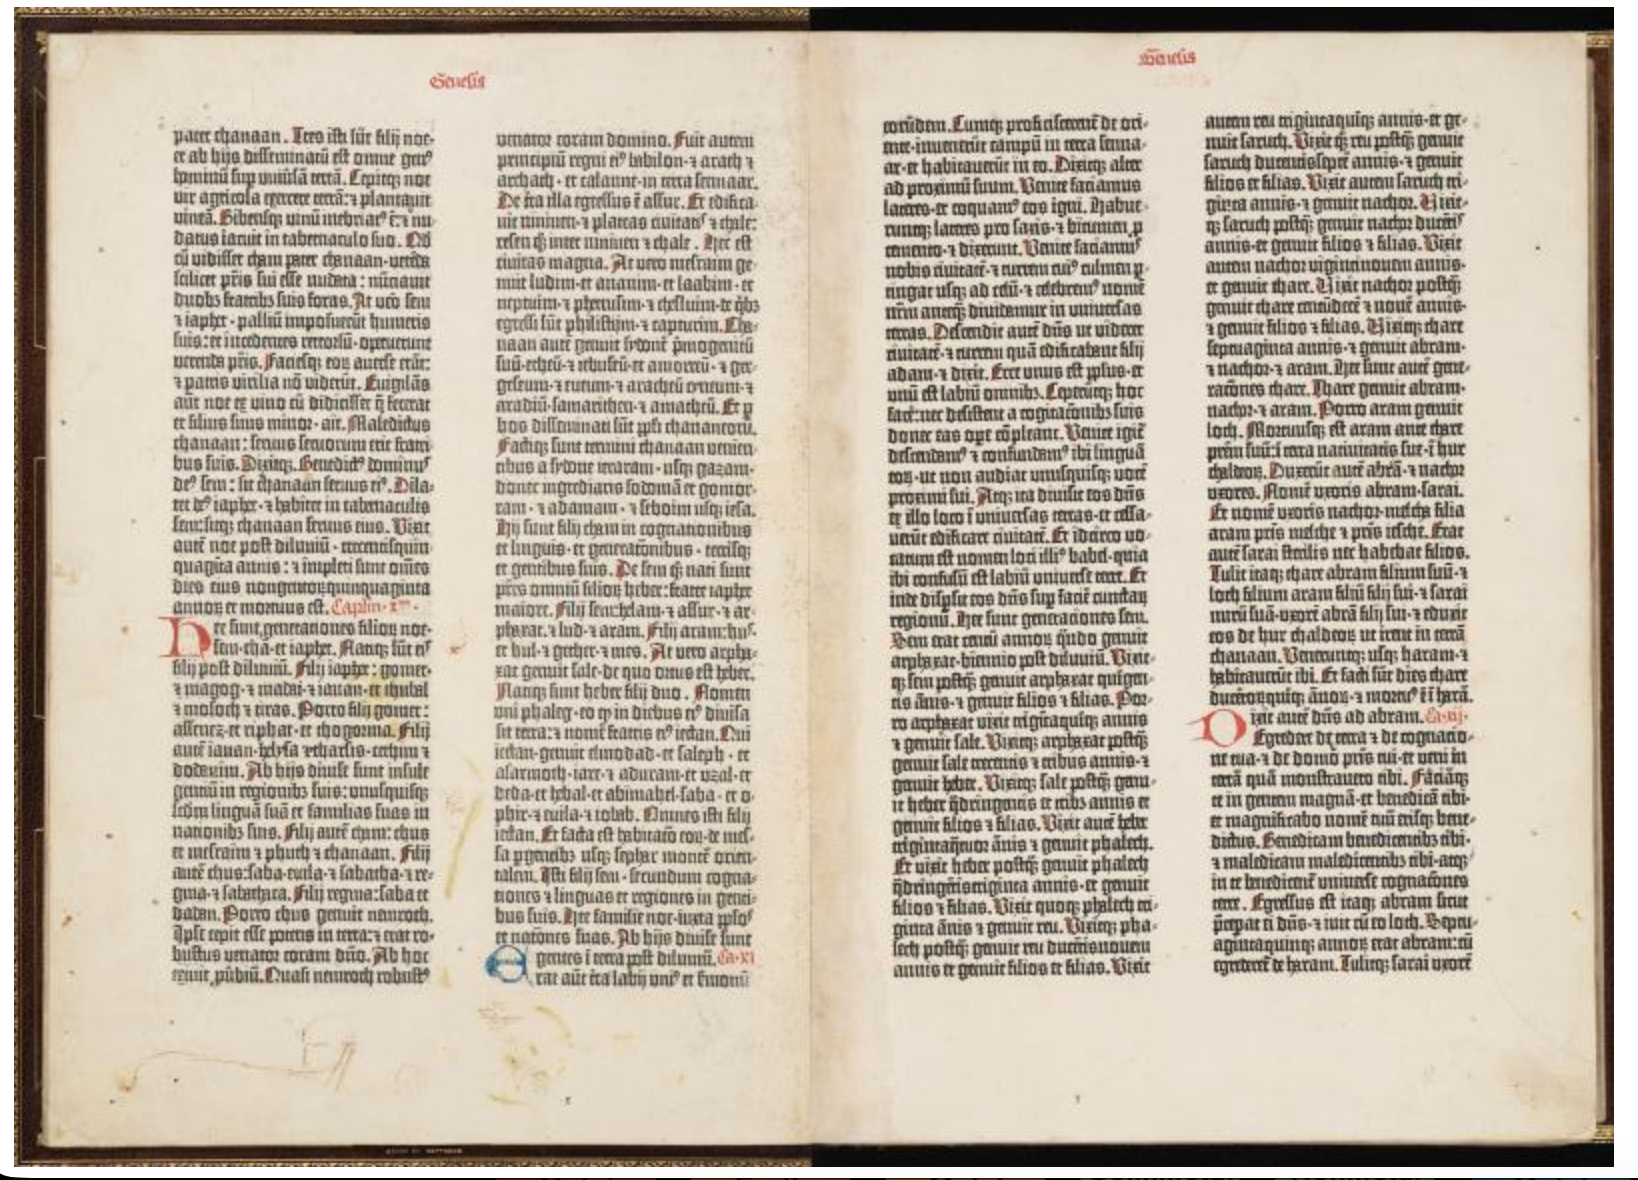 Genesis
pater chanaan. Tres isti sūt filij noe·
et ab hijs disseminatū est omne gen⁹
hominū sup univ̄sā terrā. Cepitqꝫ noe
vir agricola exercere terrā: ⁊ plantavit
vineā. Bibensqꝫ vinū inebriat⁹ ē: ⁊ nu-
datus iacuit in tabernaculo suo. Qd̄
cū vidisset cham pater chanaan·verēda
scilicet pr̄is sui esse nudata: nūciavit
duobꝫ fratribꝫ suis foras. At vēo sem
⁊ iaphet·palliū imposuerūt humeris
suis: et incedentes retrorsū·operuerunt
verenda pr̄is. Faciesqꝫ eoꝝ averse erāt:
⁊ patris virilia nō viderūt. Euigilās
aūt noe ex vino cū didicisset q̄ fecerat
ei filius suus minor·ait. Maledictus
chanaan: servus servorum erit fratri-
bus suis. Dixitqꝫ. Benedict⁹ dominus
de⁹ sem: sit chanaan servus ei⁹. Dila-
tet de⁹ iaphet·⁊ habitet in tabernaculis
sem: sitqꝫ chanaan servus eius. Vixit
autē noe post diluviū·trecentisquin-
quaginta annis: ⁊ impleti sunt om̄es
dies eius nongentorꝫquinquaginta
annoꝝ et mortuus est. Caplm·x
Hee sunt generationes filioꝝ noe·
sem·chā·et iaphet. Natiqꝫ sūt eis
filij post diluviū. Filij iaphet: gomer·
⁊ magog·⁊ madai·⁊ iauan·et thubal
⁊ mosoch ⁊ tiras. Porro filij gomer:
assenez·et riphat·et thogorma. Filij
autē iauan·helysa ⁊ tharsis·cethim ⁊
dodanim. Ab hijs divise sunt insule
gentiū in regionibꝫ suis: unusquisqꝫ
scdm linguā suā et familias suas in
nationibꝫ suis. Filij autē cham: chus
et mesraim ⁊ phuth ⁊ chanaan. Filij
autē chus: saba·euila·⁊ sabatha·⁊ re-
gma·⁊ sabathaca. Filij regma: saba et
dadan. Porro chus genuit nemroth.
Ipse cepit esse potens in terra: ⁊ erat ro-
bustus venator coram dn̄o. Ab hoc
exivit proverbiū. Quasi nemroth robust⁹
venator coram domino. Fuit autem
principiū regni ei⁹ babilon·⁊ arach ⁊
archad·et calanne·in terra sennaar.
De t̄ra illa egressus ē assur. Et edifica-
vit niniven·⁊ plateas civitatis ⁊ chale:
resen q̄ꝫ inter niniven ⁊ chale. Hec est
civitas magna. At vero mesraim ge-
nuit ludim·et anamim·et laabim·et
neptuim·⁊ phetrusim·⁊ chesluim·de q̄bꝫ
egressi sūt philistijm·⁊ capturim. Cha-
naan autē genuit sydonē p̄mogenitū
suū·etheū·⁊ iebuseū·et amorreū·⁊ ger-
geseum·⁊ eveum·⁊ aracheū·cyneum·⁊
aradiū·samaritheu·⁊ amacheū. Et p
hos disseminati sūt ppl̄i chananeorū.
Factiqꝫ sunt termini chanaan venien-
tibus a sydone geraram·usqꝫ gazam·
donec ingrediaris sodomā et gomor-
ram·⁊ adamam·⁊ seboim usqꝫ lesa.
Hij sunt filij cham in cognationibus
et linguis·et generatōnibus·terrisqꝫ
et gentibus suis. De sem q̄ꝫ nati sunt
p̄tre omniū filioꝝ heber: fratre iaphet
maiore. Filij sem: helam·⁊ assur·⁊ ar-
phaxat·⁊ lud·⁊ aram. Filij aram: hus·
et hul·⁊ gether·⁊ mes. At vero arpha-
xat genuit sale·de quo ortus est heber.
Natiqꝫ sunt heber filij duo. Nomen
uni phaleg·eo ꝙ in diebus ei⁹ divisa
sit terra: ⁊ nomē fratris ei⁹ iectan. Qui
iectan·genuit elmodad·et saleph·et
asarmoth·iare·⁊ aduram·et uzal·et
decla·et hebal·et abimahel·saba·et o-
phir·⁊ euila·⁊ iobab. Omnes isti filij
iectan. Et facta est habitatō eoꝝ·de mes-
sa pgentibꝫ usqꝫ sephar montē orien-
talem. Isti filij sem·secundum cogna-
tiones ⁊ linguas et regiones in genti-
bus suis. Hee familie noe·iuxta ppl̄os
et natōnes suas. Ab hijs divise sunt
gentes ī terra post diluviū. Ca·xi
Erat aūt t̄ra labij unius et s̄monū
Genesis
eorūdem. Cumqꝫ proficiscerent̄ de ori-
ente·invenerūt campū in terra senna-
ar·et habitaverūt in eo. Dixitqꝫ alter
ad proximū suum. Venite faciamus
lateres·et coquam⁹ eos igni. Habue-
runtqꝫ lateres pro saxis·⁊ bitumen p
cemento·⁊ dixerunt. Venite faciamus
nobis civitatē·⁊ turrem cui⁹ culmen p-
tingat usqꝫ ad celū·⁊ celebrem⁹ nomē
nr̄m anteqꝫ dividamur in universas
terras. Descendit autē dn̄s ut videret
civitatē·⁊ turrem quā edificabant filij
adam·⁊ dixit. Ecce unus est ppl̄us·et
unū est labiū omnibꝫ. Ceperuntqꝫ hoc
facē: nec desistent a cogitatōnibꝫ suis
donec eas ope cōpleant. Venite igit̄
descendam⁹ ⁊ confundam⁹ ibi linguā
eoꝝ·ut non audiat unusquisqꝫ vocē
proximi sui. Atqꝫ ita divisit eos dn̄s
ex illo loco ī universas terras·et cessa-
verūt edificare civitatē. Et idcirco vo-
catum est nomen loci illi⁹ babel·quia
ibi confusū est labiū universe terre. Et
inde disp̄sit eos dn̄s sup faciē cunctaꝝ
regionū. Hee sunt generaciones sem.
Sem erat centū annoꝝ q̄ndo genuit
arphaxat·biennio post diluviū. Vixit-
qꝫ sem postqꝫ genuit arphaxat quingen-
tis ānis·⁊ genuit filios ⁊ filias. Por-
ro arphaxat vixit trigītaquīqꝫ annis
⁊ genuit sale. Vixitqꝫ arphaxat postqꝫ
genuit sale trecentis ⁊ tribus annis·⁊
genuit heber. Vixitqꝫ sale postqꝫ genu-
it heber q̄dringentis et tribꝫ annis et
genuit filios ⁊ filias. Vixit autē heber
trigintaq̄tuor ānis ⁊ genuit phalech.
Et vixit heber postqꝫ genuit phalech
q̄dringētistriginta annis·et genuit
filios ⁊ filias. Vixit quoqꝫ phalech tri-
ginta ānis ⁊ genuit reu. Vixitqꝫ pha-
lech postqꝫ genuit reu ducētisnovem
annis et genuit filios et filias. Vixit
autem reu trigintaquīqꝫ annis·et ge-
nuit saruch. Vixit qꝫ reu postqꝫ genuit
saruch ducentisseptē annis·⁊ genuit
filios et filias. Vixit autem saruch tri-
ginta annis·⁊ genuit nachor. Vixit-
qꝫ saruch postqꝫ genuit nachor ducētis
annis·et genuit filios ⁊ filias. Vixit
autem nachor vigintinovem annis·
et genuit thare. Vixit nachor postqꝫ
genuit thare centūdecē ⁊ novē annis·
⁊ genuit filios ⁊ filias. Vixitqꝫ thare
septuaginta annis·⁊ genuit abram·
⁊ nachor·⁊ aram. Hee sunt autē gene-
ratōnes thare. Thare genuit abram·
nachor·⁊ aram. Porro aram genuit
loth. Mortuusqꝫ est aram ante thare
prēm suū: ī terra nativitatis sue·ī hur
chaldeoꝝ. Duxerūt autē abrā·⁊ nachor
uxores. Nomē uxoris abram·sarai.
Et nomē uxoris nachor·melcha filia
aram pr̄is melche ⁊ pr̄is iesche. Erat
autē sarai sterilis nec habebat filios.
Tulit itaqꝫ thare abram filium suū·⁊
loth filium aram filiū filij sui·⁊ sarai
nurū suā·uxorē abrā filij sui·⁊ eduxit
eos de hur chaldeoꝝ ut irent in terrā
chanaan. Veneruntqꝫ usqꝫ haram·⁊
habitaverūt ibi. Et facti sūt dies thare
ducētoꝝquīqꝫ ānoꝝ·⁊ mortu⁹ ē ī harā.
Dixit autē dn̄s ad abram. Ca·xij·
Egredere de terra ⁊ de cognatio-
ne tua·⁊ de domo pr̄is tui·et veni in
terrā quā monstravero tibi. Faciāqꝫ
te in gentem magnā·et benedicā tibi·
et magnificabo nomē tuū erisqꝫ bene-
dictus. Benedicam benedicentibꝫ tibi·
⁊ maledicam maledicentibꝫ tibi·atqꝫ
in te benedicent̄ universe cognatōnes
terre. Egressus est itaqꝫ abram sicut
p̄ceperat ei dn̄s·⁊ ivit cū eo loth. Septu-
agintaquinqꝫ annoꝝ erat abram: cū
egrederet̄ de haram. Tulitqꝫ sarai uxorē